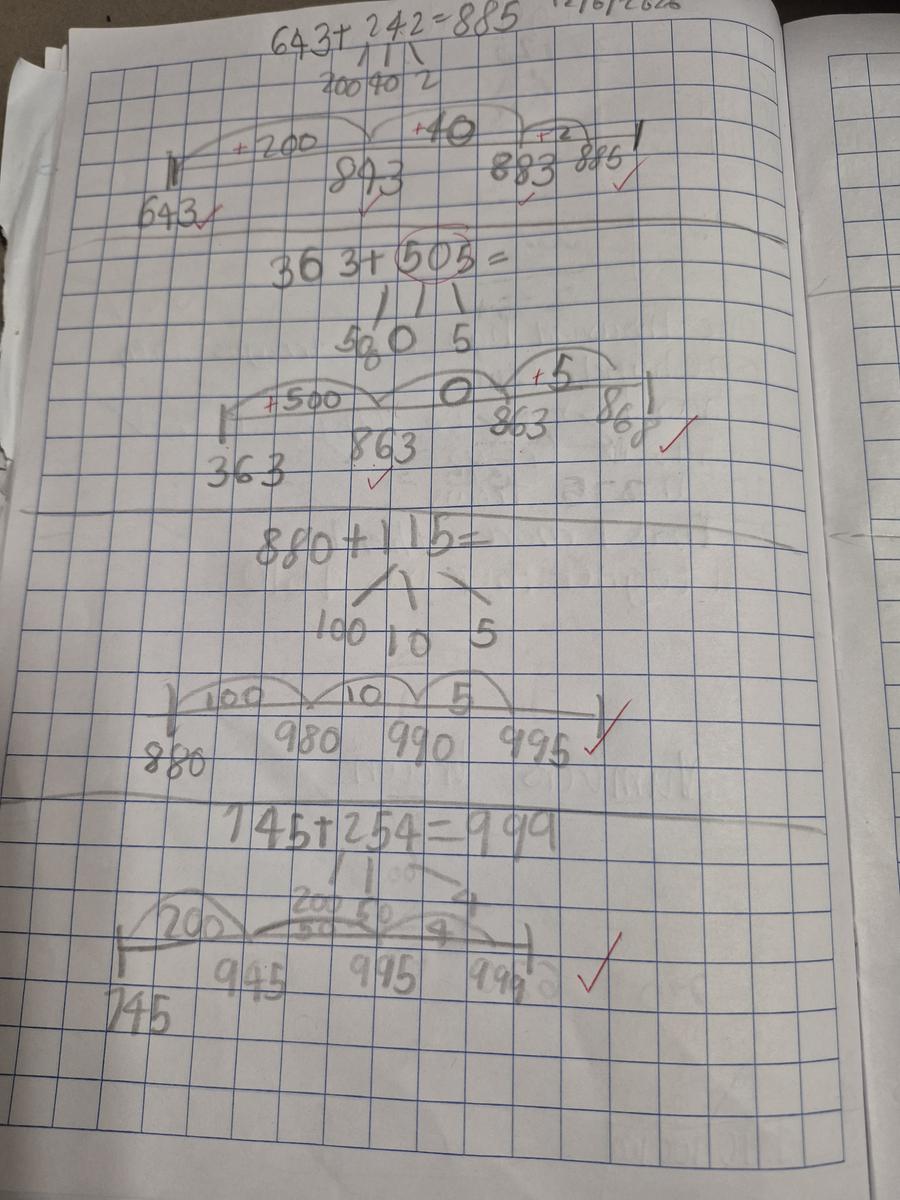 12/6/2026
643+ 242=885
200 40 2
+200 +40 +2
643 843 883 885
363+505=
500 0 5
+500 0 +5
363 863 863 868
880+115=
100 10 5
100 10 5
880 980 990 995
745+254=999
200 50 4
200 50 4
745 945 995 999